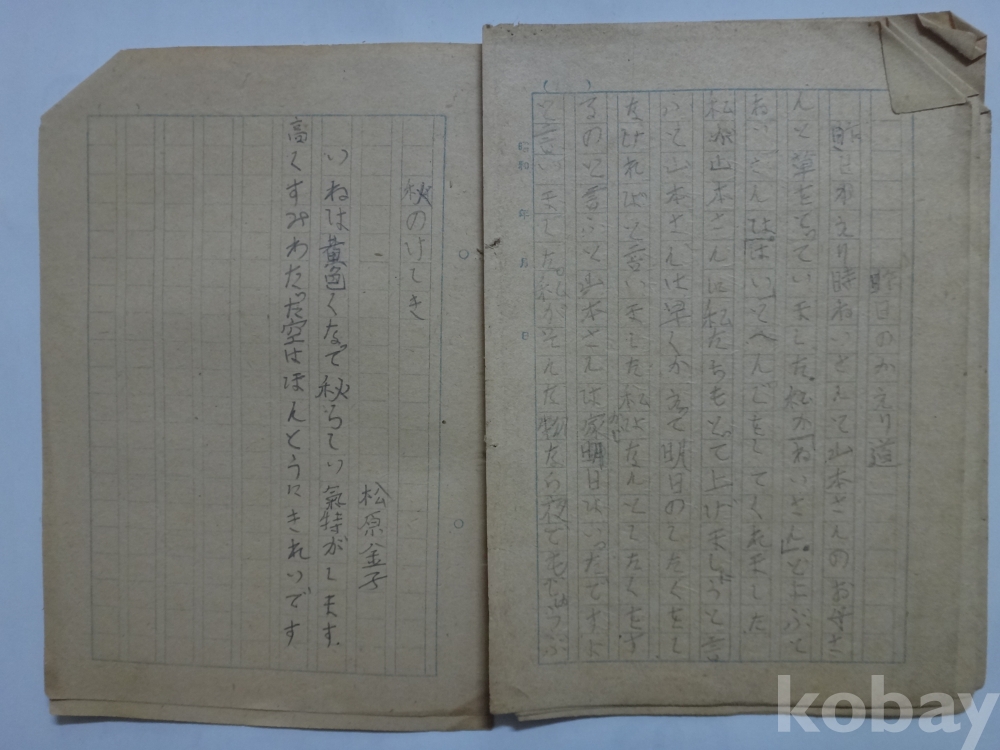 昨日のかえり道
昨日かえり時ねいさんて山本さんのお母さ
んと草をとっていました。私が「ねいさん」。とよぶと
ねいさんは「はい」とへんじをしてくれました
山本さんに私たちもとって上げましょうと言
いと山本さんは早くかえって明日のしたくをし
なければと言いました私はなんとしたくをす
るのと言ふと山本さんは家明日
と言いました。私がそんな物なら夜でも
昭和 年 月 日
秋のけしき
松原金子
いねは黄色くなって秋らしい氣持がします.
高くすみわたった空はほんとうにきれいです
kobay